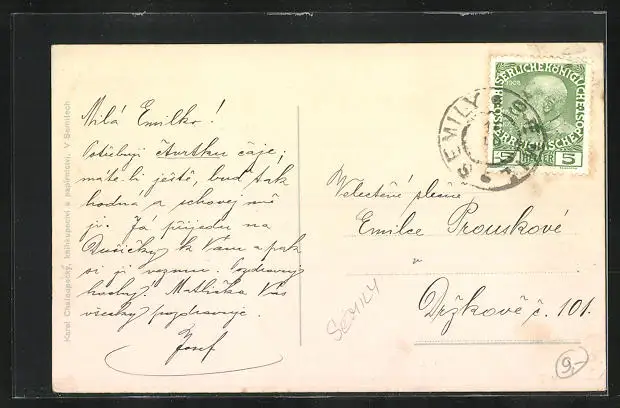 Karel Chaloupecký, knihkupectví a papírnictví. V Semilech
Milá Emilko!
Potřebuji čtvrtku čaje,
máte-li ještě, buď tak
hodná a schovej mě
ji. Já přijedu na
Dušičky k Vám a pak
si ji vezmu. Pozdravuj
hochy. Matička Vás
všecky pozdravuje.
Josef
SEMILY
KAISERLICHE KÖNIGLICHE
ÖSTERREICHISCHE
1908
5 HELLER 5
Velectěné slečně
Emilce Prouskové
v
Držkově č. 101.
SEMILY
9,-